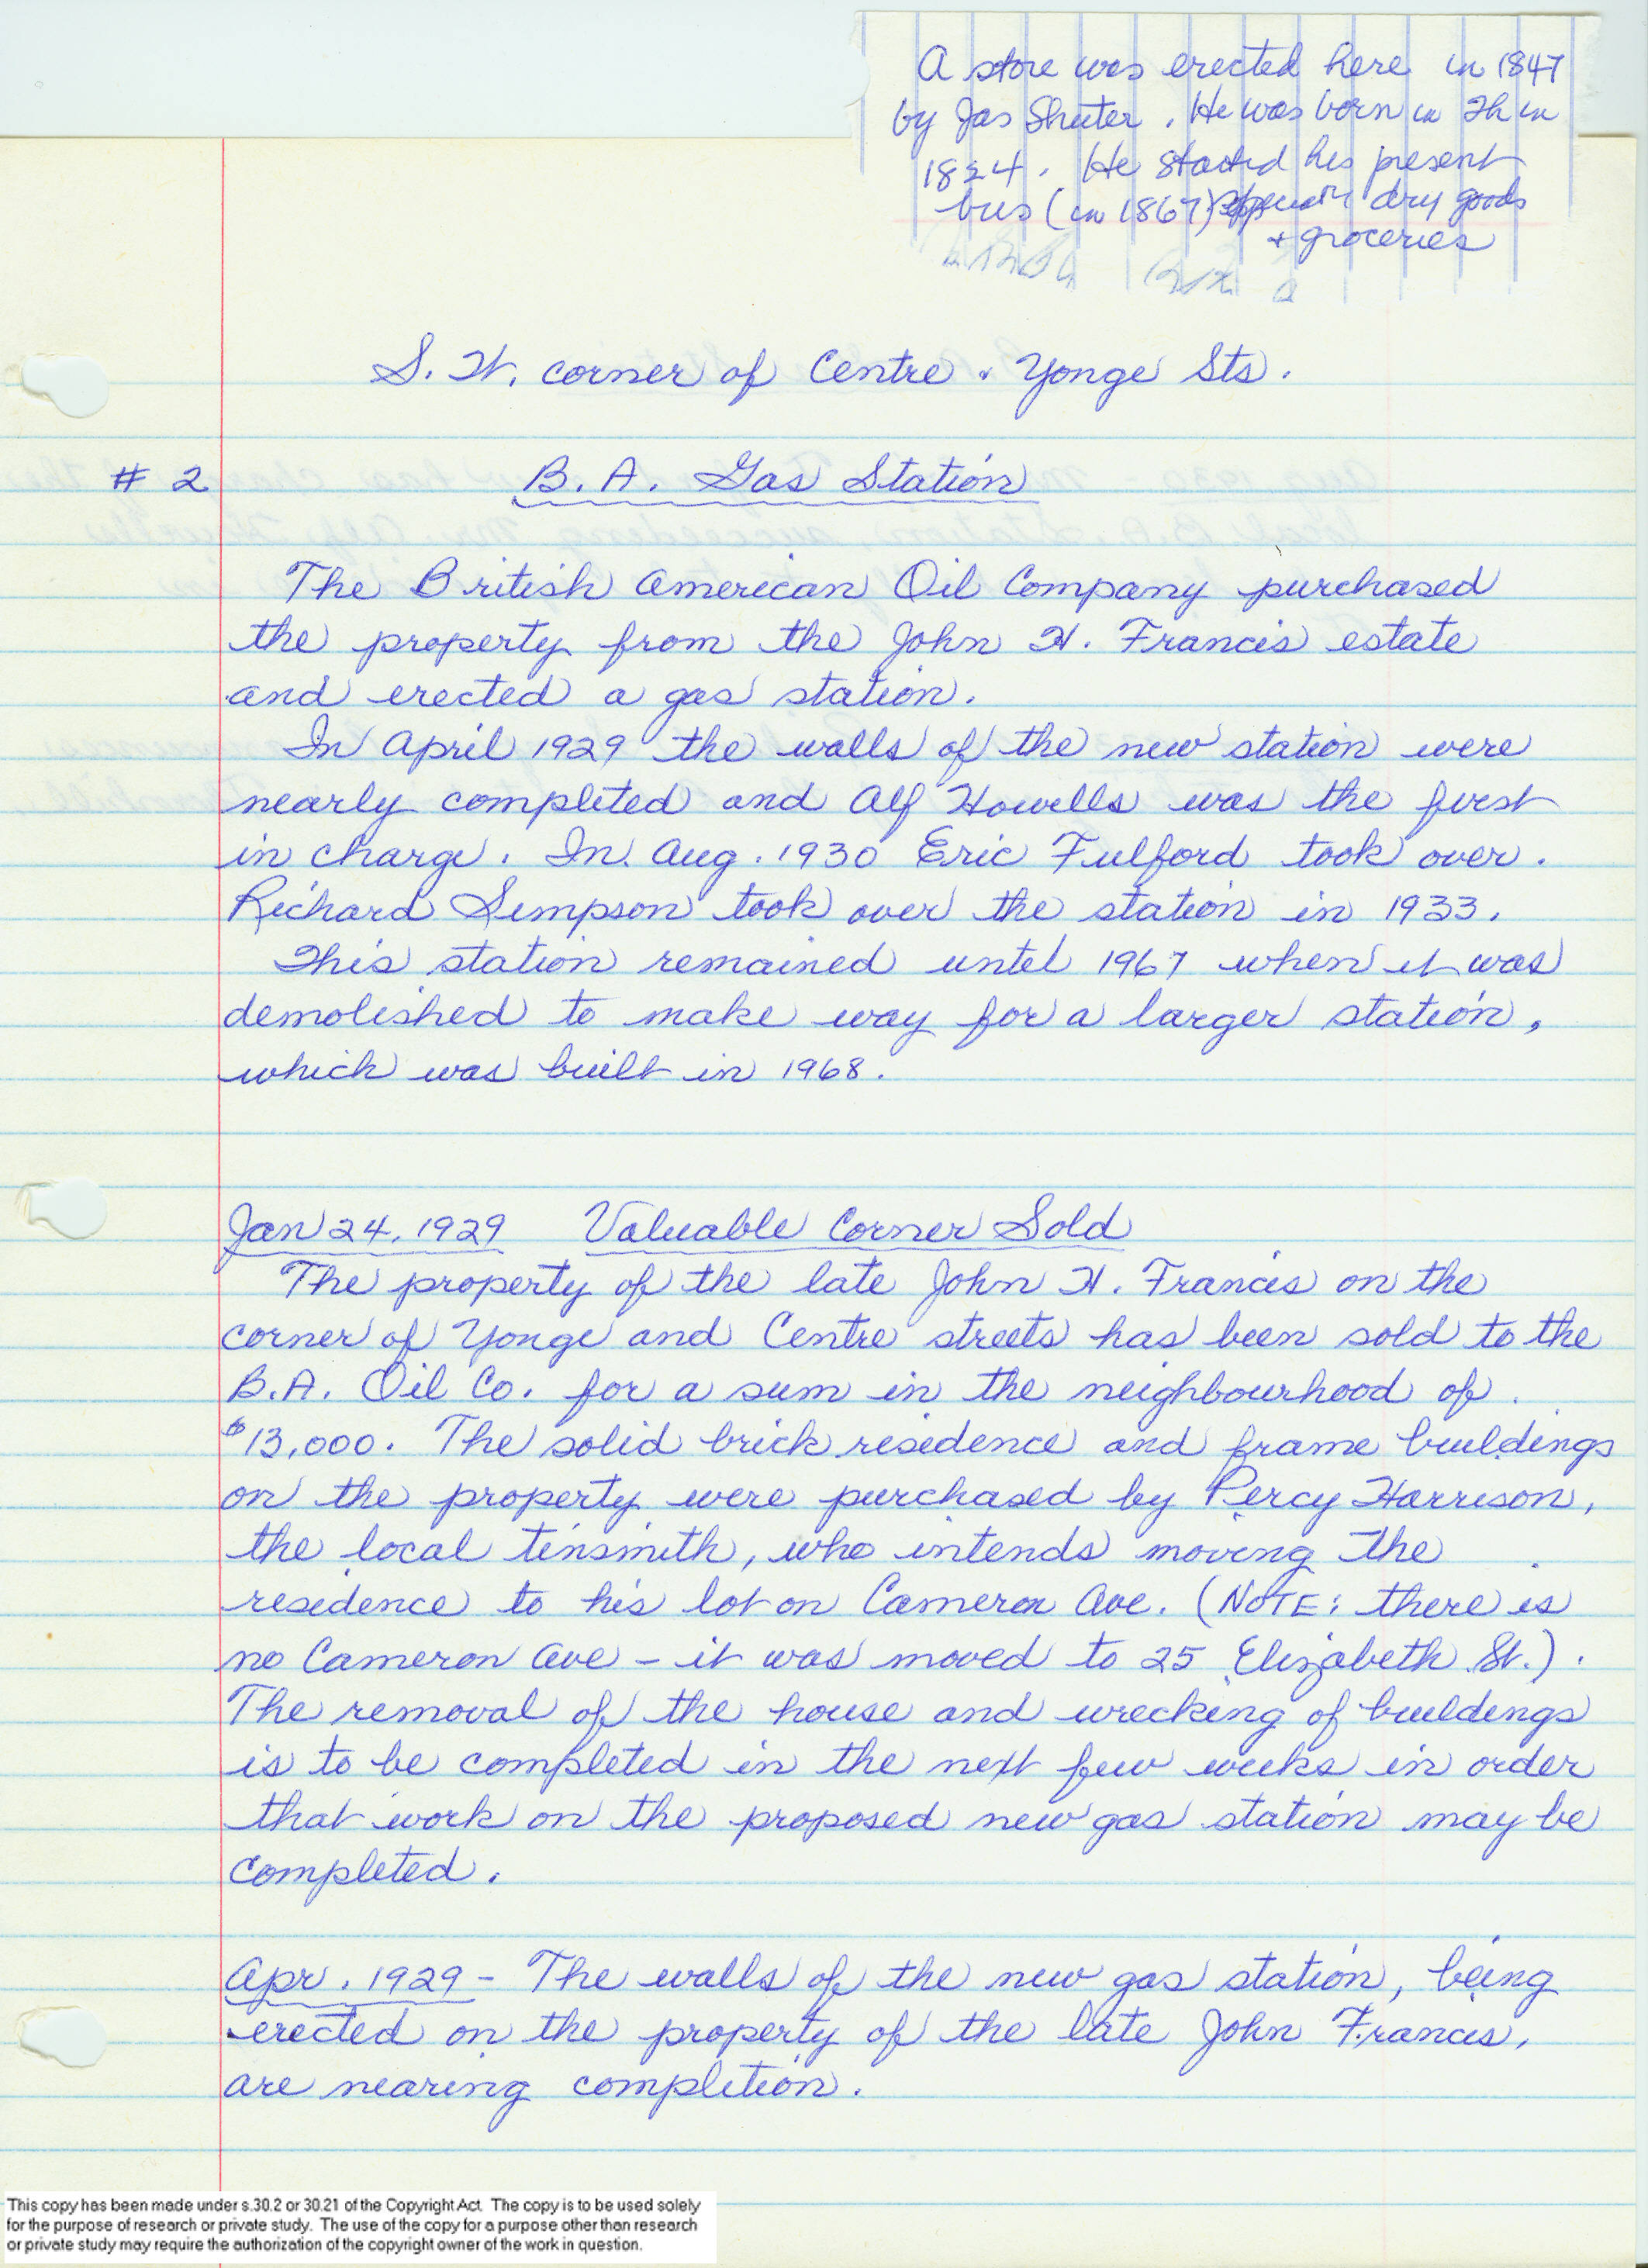 A store was erected here in 1847
by Jas Shuter. He was born in Th in
1824. He started his present
bus (in 1867) dry goods
+ groceries
S. W. corner of Centre & Yonge Sts.
# 2 B. A. Gas Station
The British American Oil Company purchased
the property from the John H. Francis estate
and erected a gas station.
In April 1929 the walls of the new station were
nearly completed and Alf Howells was the first
in charge. In Aug. 1930 Eric Fulford took over.
Richard Simpson took over the station in 1933.
This station remained until 1967 when it was
demolished to make way for a larger station,
which was built in 1968.
Jan 24, 1929 Valuable Corner Sold
The property of the late John H. Francis on the
corner of Yonge and Centre streets has been sold to the
B.A. Oil Co. for a sum in the neighbourhood of
$13,000. The solid brick residence and frame buildings
on the property were purchased by Percy Harrison,
the local tinsmith, who intends moving the
residence to his lot on Cameron Ave. (NOTE: there is
no Cameron Ave - it was moved to 25 Elizabeth St.).
The removal of the house and wrecking of buildings
is to be completed in the next few weeks in order
that work on the proposed new gas station may be
completed.
Apr. 1929 - The walls of the new gas station, being
erected on the property of the late John Francis,
are nearing completion.
This copy has been made under s.30.2 or 30.21 of the Copyright Act. The copy is to be used solely
for the purpose of research or private study. The use of the copy for a purpose other than research
or private study may require the authorization of the copyright owner of the work in question.